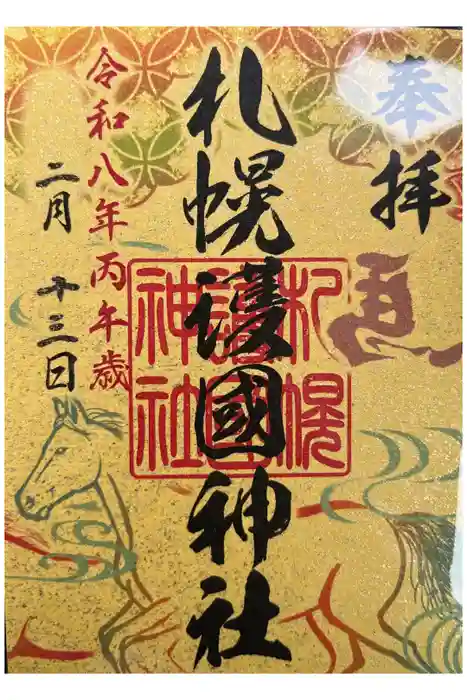 奉拝
札幌護國神社
札幌護國神社
令和八年丙午歳
二月十三日